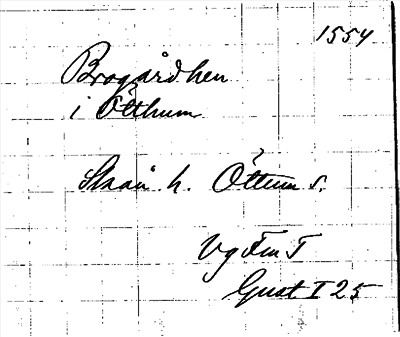 1554
Brogårdhen
i Ötthum
Skån h. Öttum s.
Vg Fm T
Gust. I 25